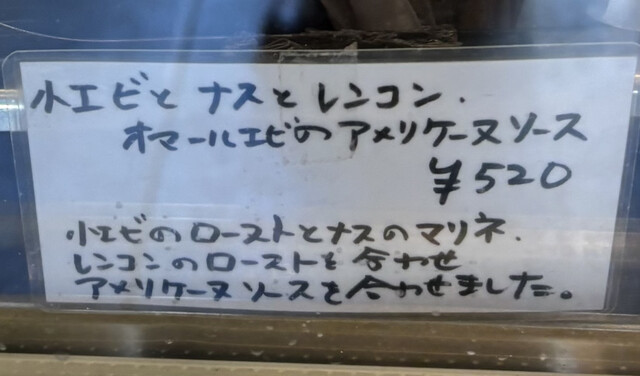 小エビとナスとレンコン.
オマールエビのアメリケーヌソース
¥520
小エビのローストとナスのマリネ.
レンコンのローストを合わせ
アメリケーヌソースを合わせました。